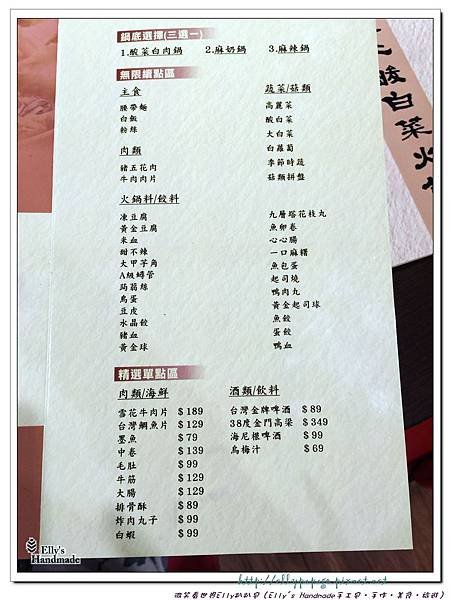 鍋底選擇(三選一)
1.酸菜白肉鍋 2.麻奶鍋 3.麻辣鍋
無限續點區
主食
腰帶麵
白飯
粉絲
肉類
豬五花肉
牛肉肉片
蔬菜/菇類
高麗菜
酸白菜
大白菜
白蘿蔔
季節時蔬
菇類拼盤
火鍋料/餃料
凍豆腐
黃金豆腐
米血
甜不辣
大甲芋角
A級鱘管
蒟蒻絲
鳥蛋
豆皮
水晶餃
豬血
黃金球
九層塔花枝丸
魚卵卷
心心腸
一口麻糬
魚包蛋
起司燒
鴨肉丸
黃金起司球
魚餃
蛋餃
鴨血
精選單點區
肉類/海鮮
雪花牛肉片 $189
台灣鯛魚片 $129
墨魚 $79
中卷 $139
毛肚 $99
牛筋 $129
大腸 $129
排骨酥 $89
炸肉丸子 $99
白蝦 $99
酒類/飲料
台灣金牌啤酒 $89
38度金門高粱 $349
海尼根啤酒 $99
烏梅汁 $69
酸白菜火
Elly's
Handmade
http://ellypopogo.pixnet.net
微笑看世界Elly趴趴皂(Elly's Handmade手工皂‧手作‧美食‧旅遊)